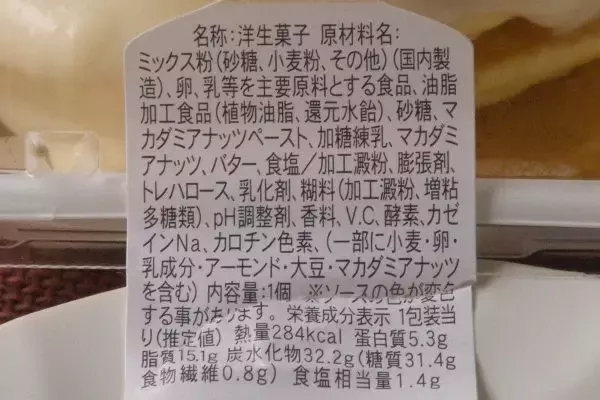 名称:洋生菓子 原材料名:
ミックス粉(砂糖、小麦粉、その他)(国内製
造)、卵、乳等を主要原料とする食品、油脂
加工食品(植物油脂、還元水飴)、砂糖、マ
カダミアナッツペースト、加糖練乳、マカダミ
アナッツ、バター、食塩/加工澱粉、膨張剤、
トレハロース、乳化剤、糊料(加工澱粉、増粘
多糖類)、pH調整剤、香料、V.C、酵素、カゼ
インNa、カロチン色素、(一部に小麦・卵・
乳成分・アーモンド・大豆・マカダミアナッツ
を含む) 内容量:1個 ※ソースの色が変色
する事があります。栄養成分表示 1包装当
り(推定値) 熱量284kcal 蛋白質5.3g
脂質15.1g 炭水化物32.2g(糖質31.4g
食物繊維0.8g) 食塩相当量1.4g